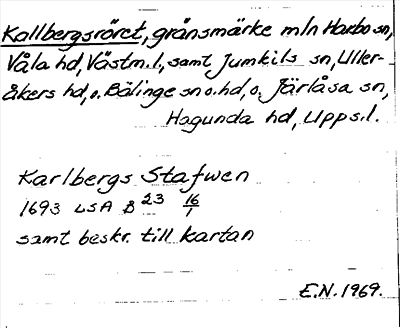 Kallbergsröret, gränsmärke mln Harbo sn,
Våla hd, Västm.l., samt Jumkils sn, Uller-
åkers hd, o. Bälinge sn o. hd, o. Järlåsa sn,
Hagunda hd, Upps.l.
Karlbergs Stafwen
1693 LSA B 23 16/1
samt beskr. till kartan
E.N. 1969.